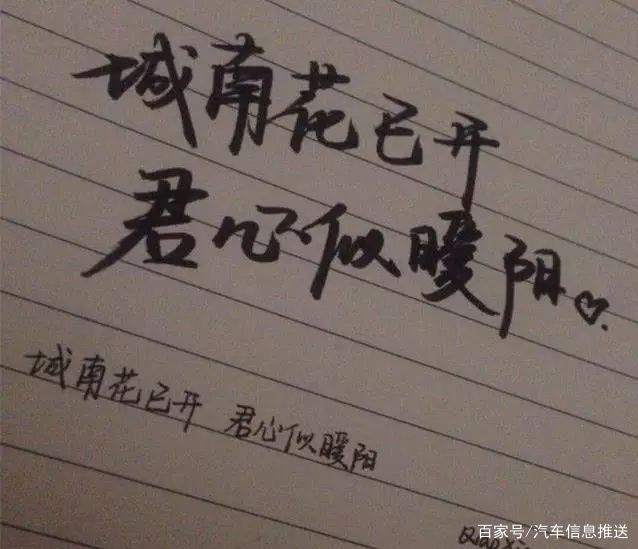 城南花已开
君心似暖阳。
城南花已开 君心似暖阳
百家号/汽车信息推送